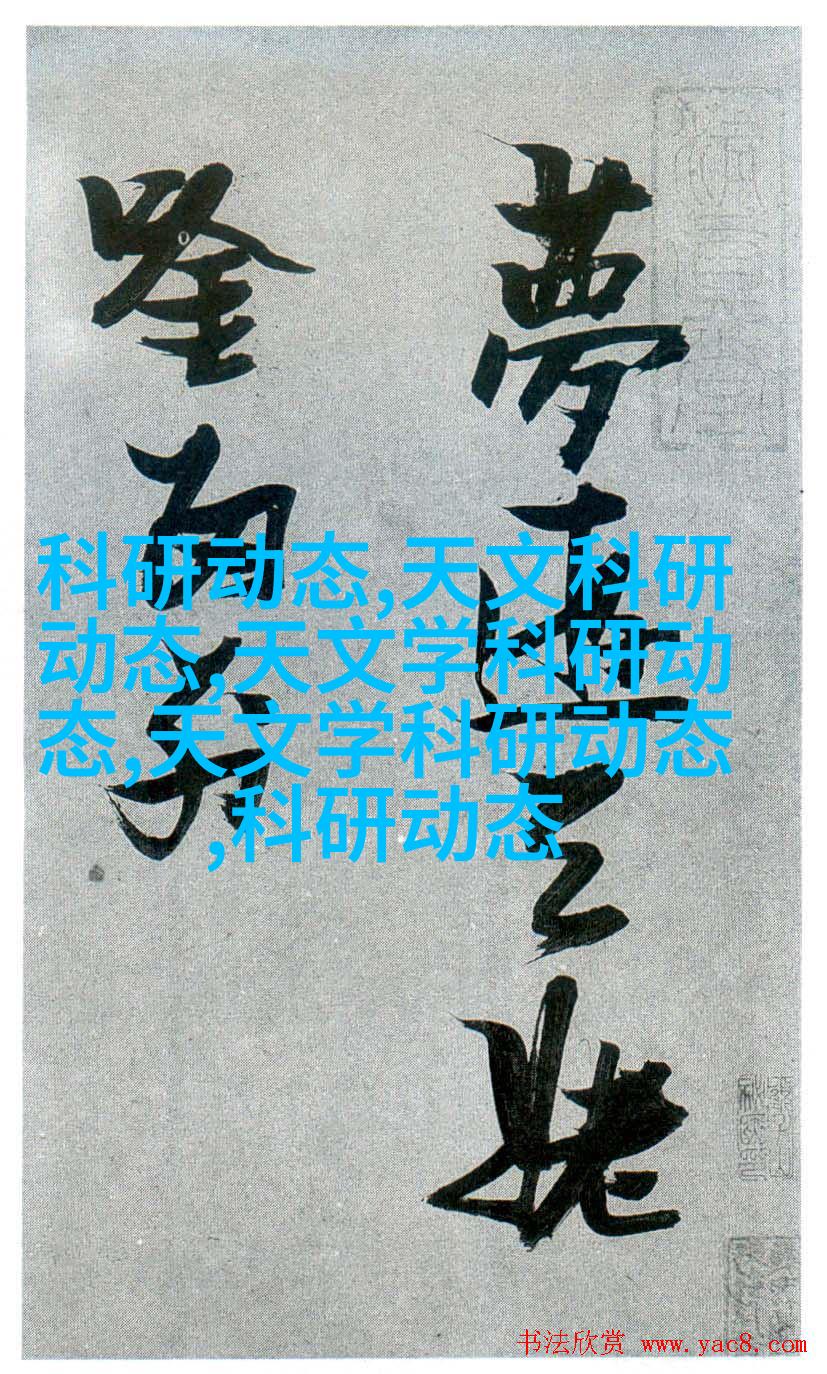 夢遊天姥
唫留別
科研动态,天文科研
动态,天文学科研动
态,天文学科研动态
,科研动态
书法欣赏 www.yac8.com